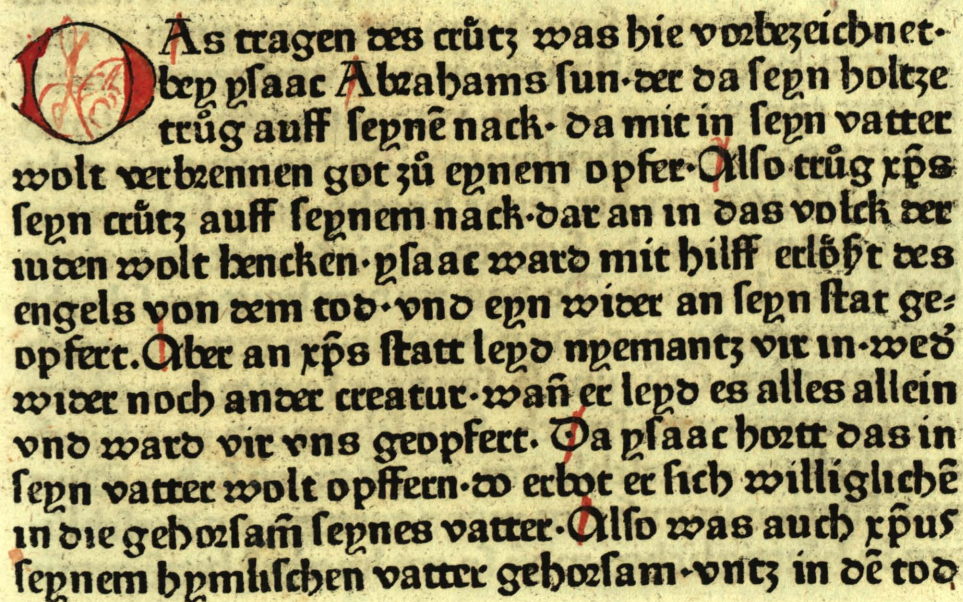 DAs tragen des crütz was hie vorbezeichnet·
bey ysaac Abrahams sun·der da seyn holtze
trůg auff seynē nack· da mit in seyn vatter
wolt verbrennen got zů eynem opfer·Also trůg xp̄s
seyn crütz auff seynem nack·dar an in das volck der
iuden wolt hencken·ysaac ward mit hilff erlößt des
engels von dem tod·vnd eyn wider an seyn stat ge⸗
opfert.Aber an xp̄s statt leyd nyemantz vir in·wed᷒
wider noch ander creatur·wan̄ er leyd es alles allein
vnd ward vir vns geopfert· Da ysaac hortt das in
seyn vatter wolt opffern·do erbot er sich williglichē
in die gehorsam̄ seynes vatter·Also was auch xp̄us
seynem hymlischen vatter gehorsam·vntz in dē tod